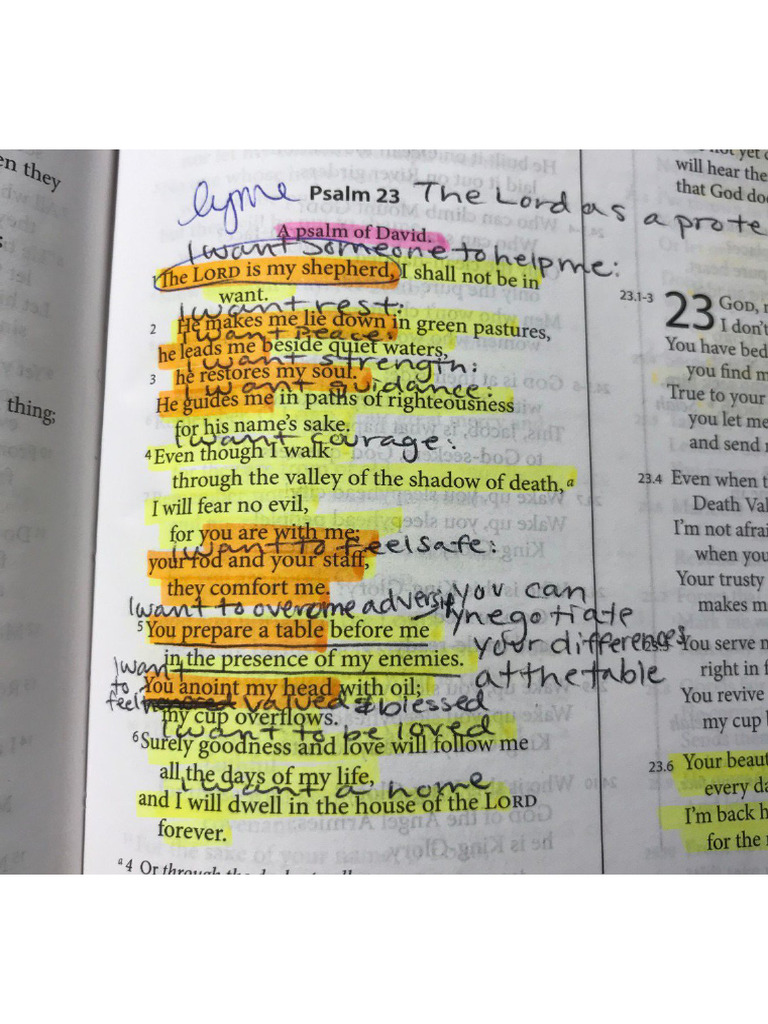 en they
thing;
lyme Psalm 23 The Lord as a prote
A psalm of David.
I want someone to help me:
The LORD is my shepherd, I shall not be in
want.
I want rest:
2 He makes me lie down in green pastures,
I want peace:
he leads me beside quiet waters,
I want strength:
3 he restores my soul.
I want guidance:
He guides me in paths of righteousness
for his name's sake.
I want courage:
4 Even though I walk
through the valley of the shadow of death, a
I will fear no evil,
for you are with me;
I want to feel safe:
your rod and your staff,
they comfort me.
I want to overcome adversity
5 You prepare a table before me
in the presence of my enemies.
you can
negotiate
your differences
at the table
I want
to
feel valued & blessed
You anoint my head with oil;
my cup overflows.
I want to be loved
6 Surely goodness and love will follow me
all the days of my life,
I want a home
and I will dwell in the house of the LORD
forever.
a 4 Or through the
not yet
will hear the
that God do
23.1-3
23 GOD,
I don't
You have bed
you find m
True to your
you let me
and send
23.4 Even when t
Death Val
I'm not afrai
when you
Your trusty
makes m
You serve
right in f
You revive
my cup
23.6 Your beaut
every da
I'm back h
for the